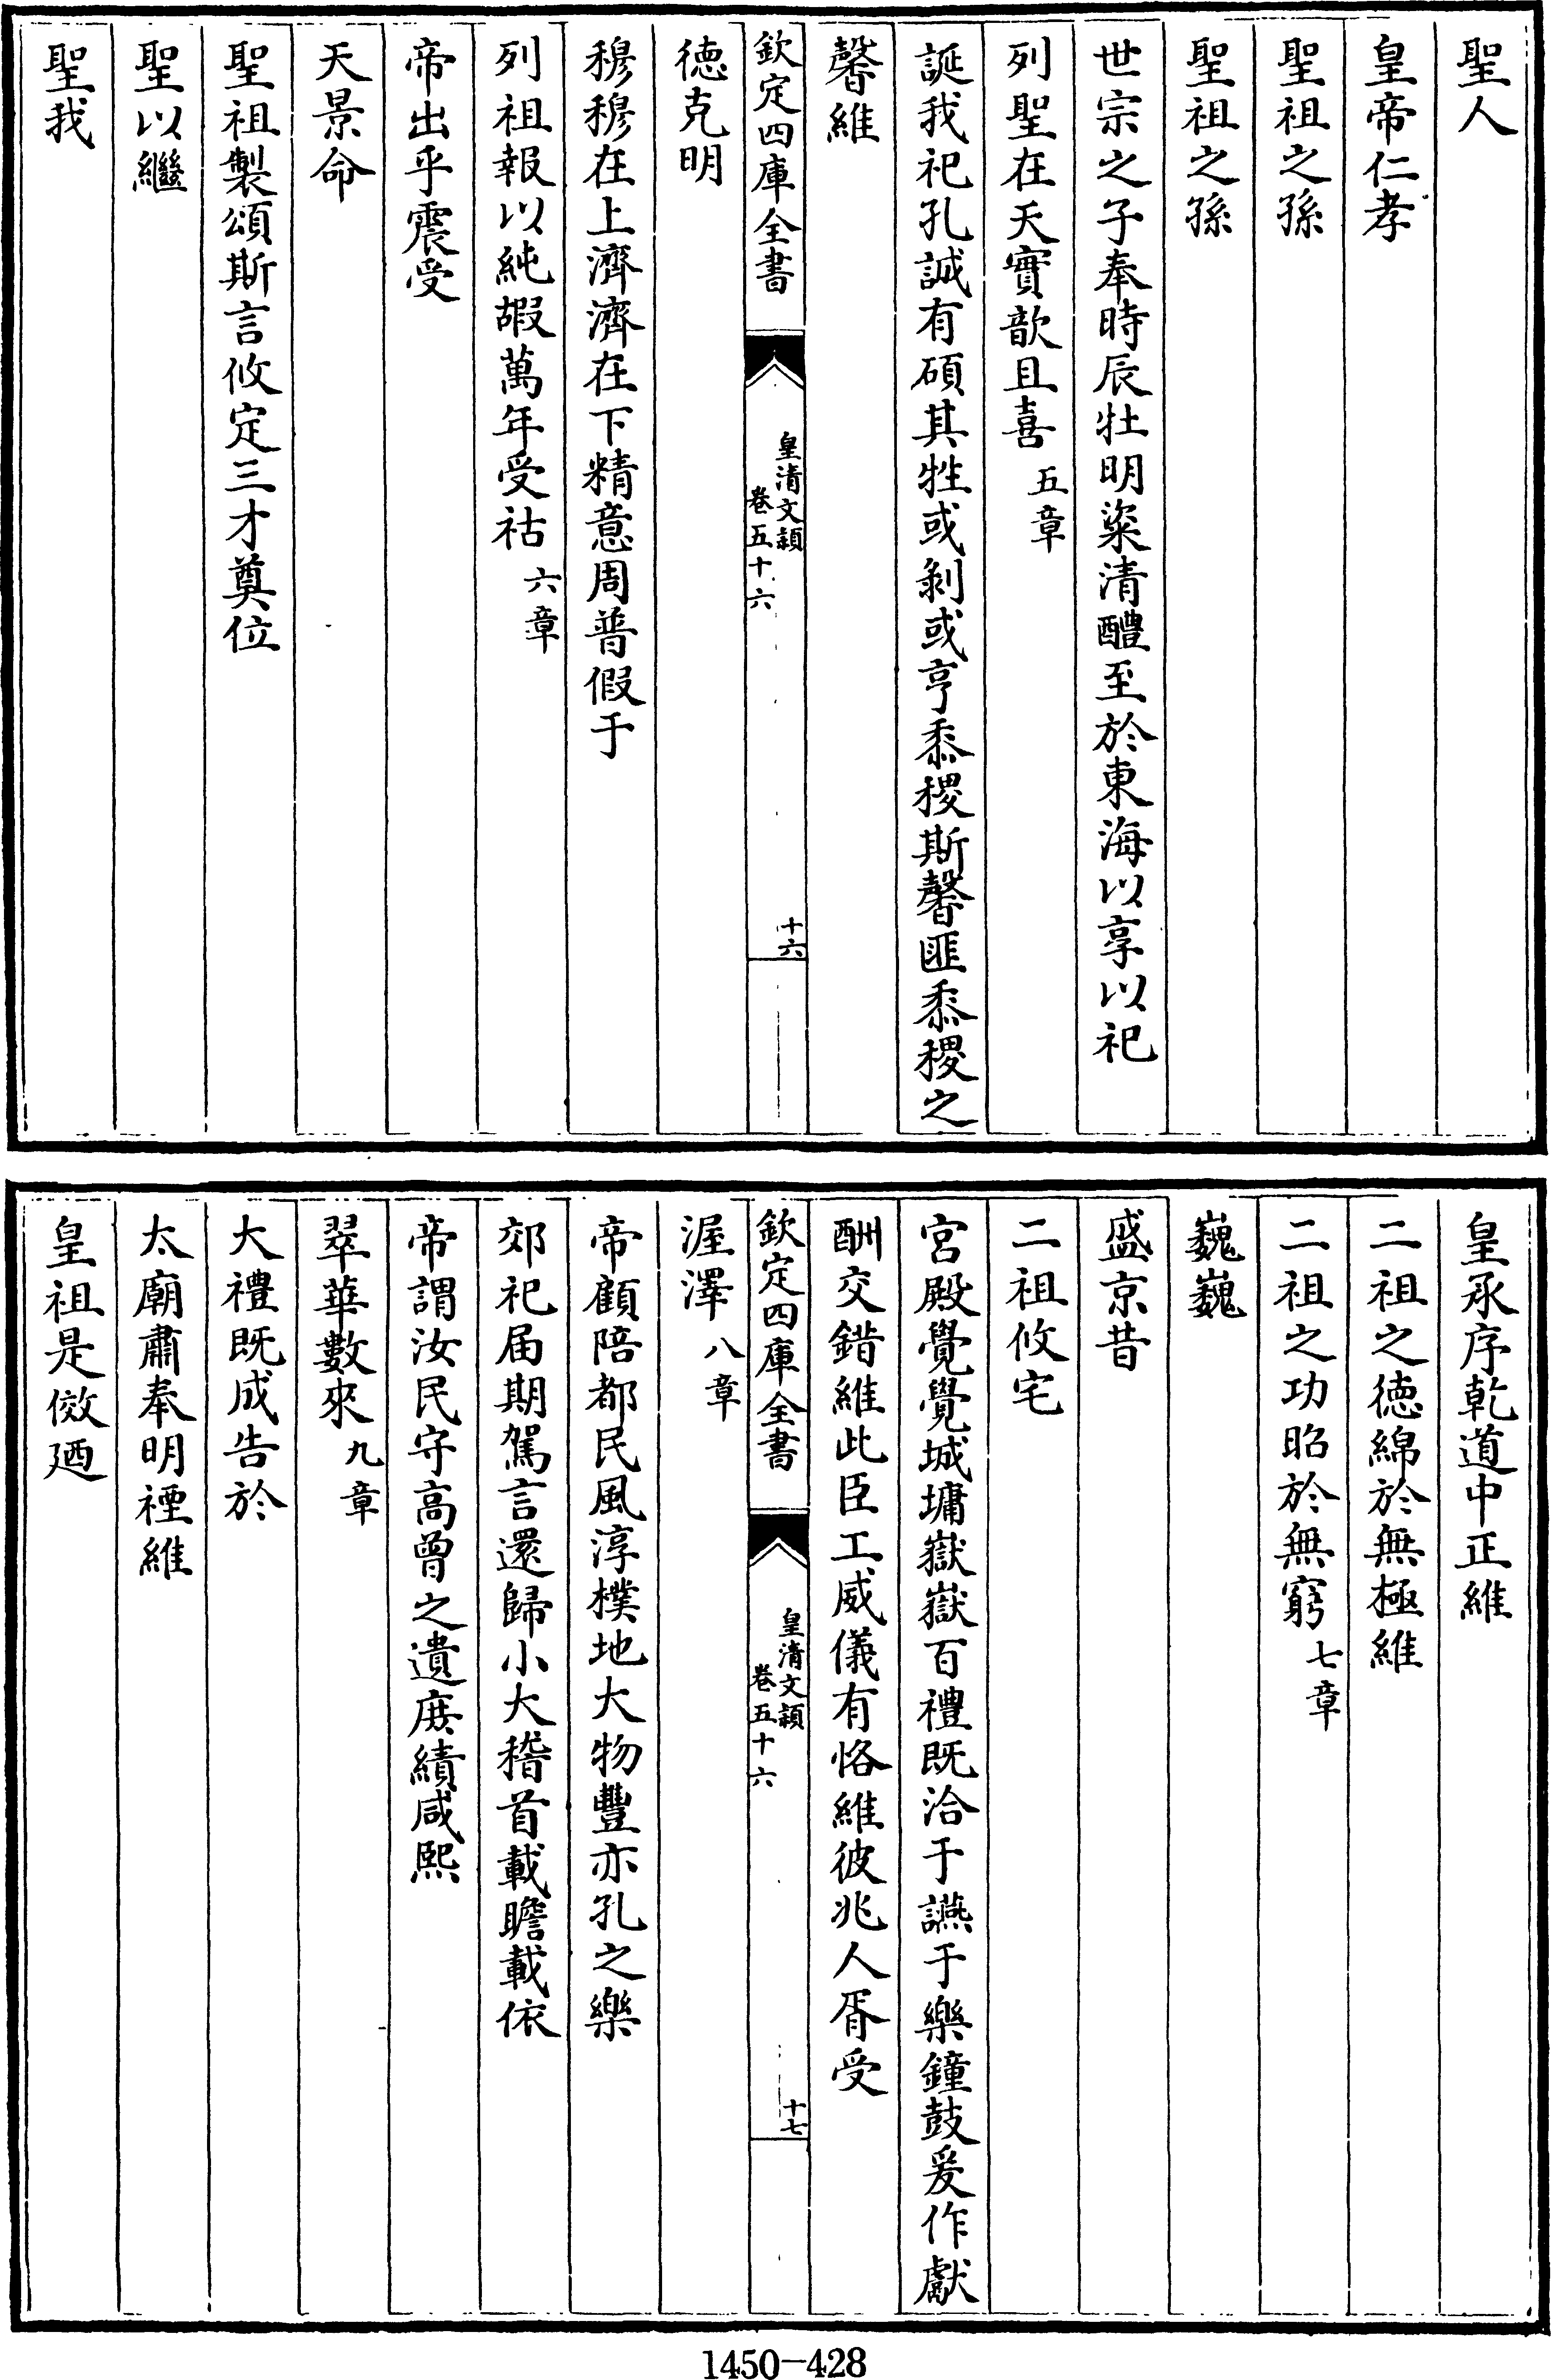 聖人
皇帝仁孝
聖祖之孫
聖祖之孫
世宗之子奉時辰牡明粢清醴至於東海以享以祀
列聖在天實歆且喜五章
誕我祀孔誠有碩其牲或剝或亨黍稷斯馨匪黍稷之
馨維
欽定四庫全書
皇清文穎
卷五十六
十六
德克明
穆穆在上濟濟在下精意周普假于
列祖報以純嘏萬年受祜六章
帝出乎震受
天景命
聖祖製頌斯言攸定三才奠位
聖以繼
聖我
皇承序乾道中正維
二祖之德綿於無極維
二祖之功昭於無窮七章
巍巍
盛京昔
二祖攸宅
宮殿覺覺城墉嶽嶽百禮既洽于讌于樂鐘鼓爰作獻
酬交錯維此臣工威儀有恪維彼兆人胥受
欽定四庫全書
皇清文穎
卷五十六
十七
渥澤八章
帝顧陪都民風淳樸地大物豐亦孔之樂
郊祀届期駕言還歸小大稽首載瞻載依
帝謂汝民守高曾之遺庶績咸熙
翠華數來九章
大禮既成告於
太廟肅奉明禋維
皇祖是傚廼
1450-428